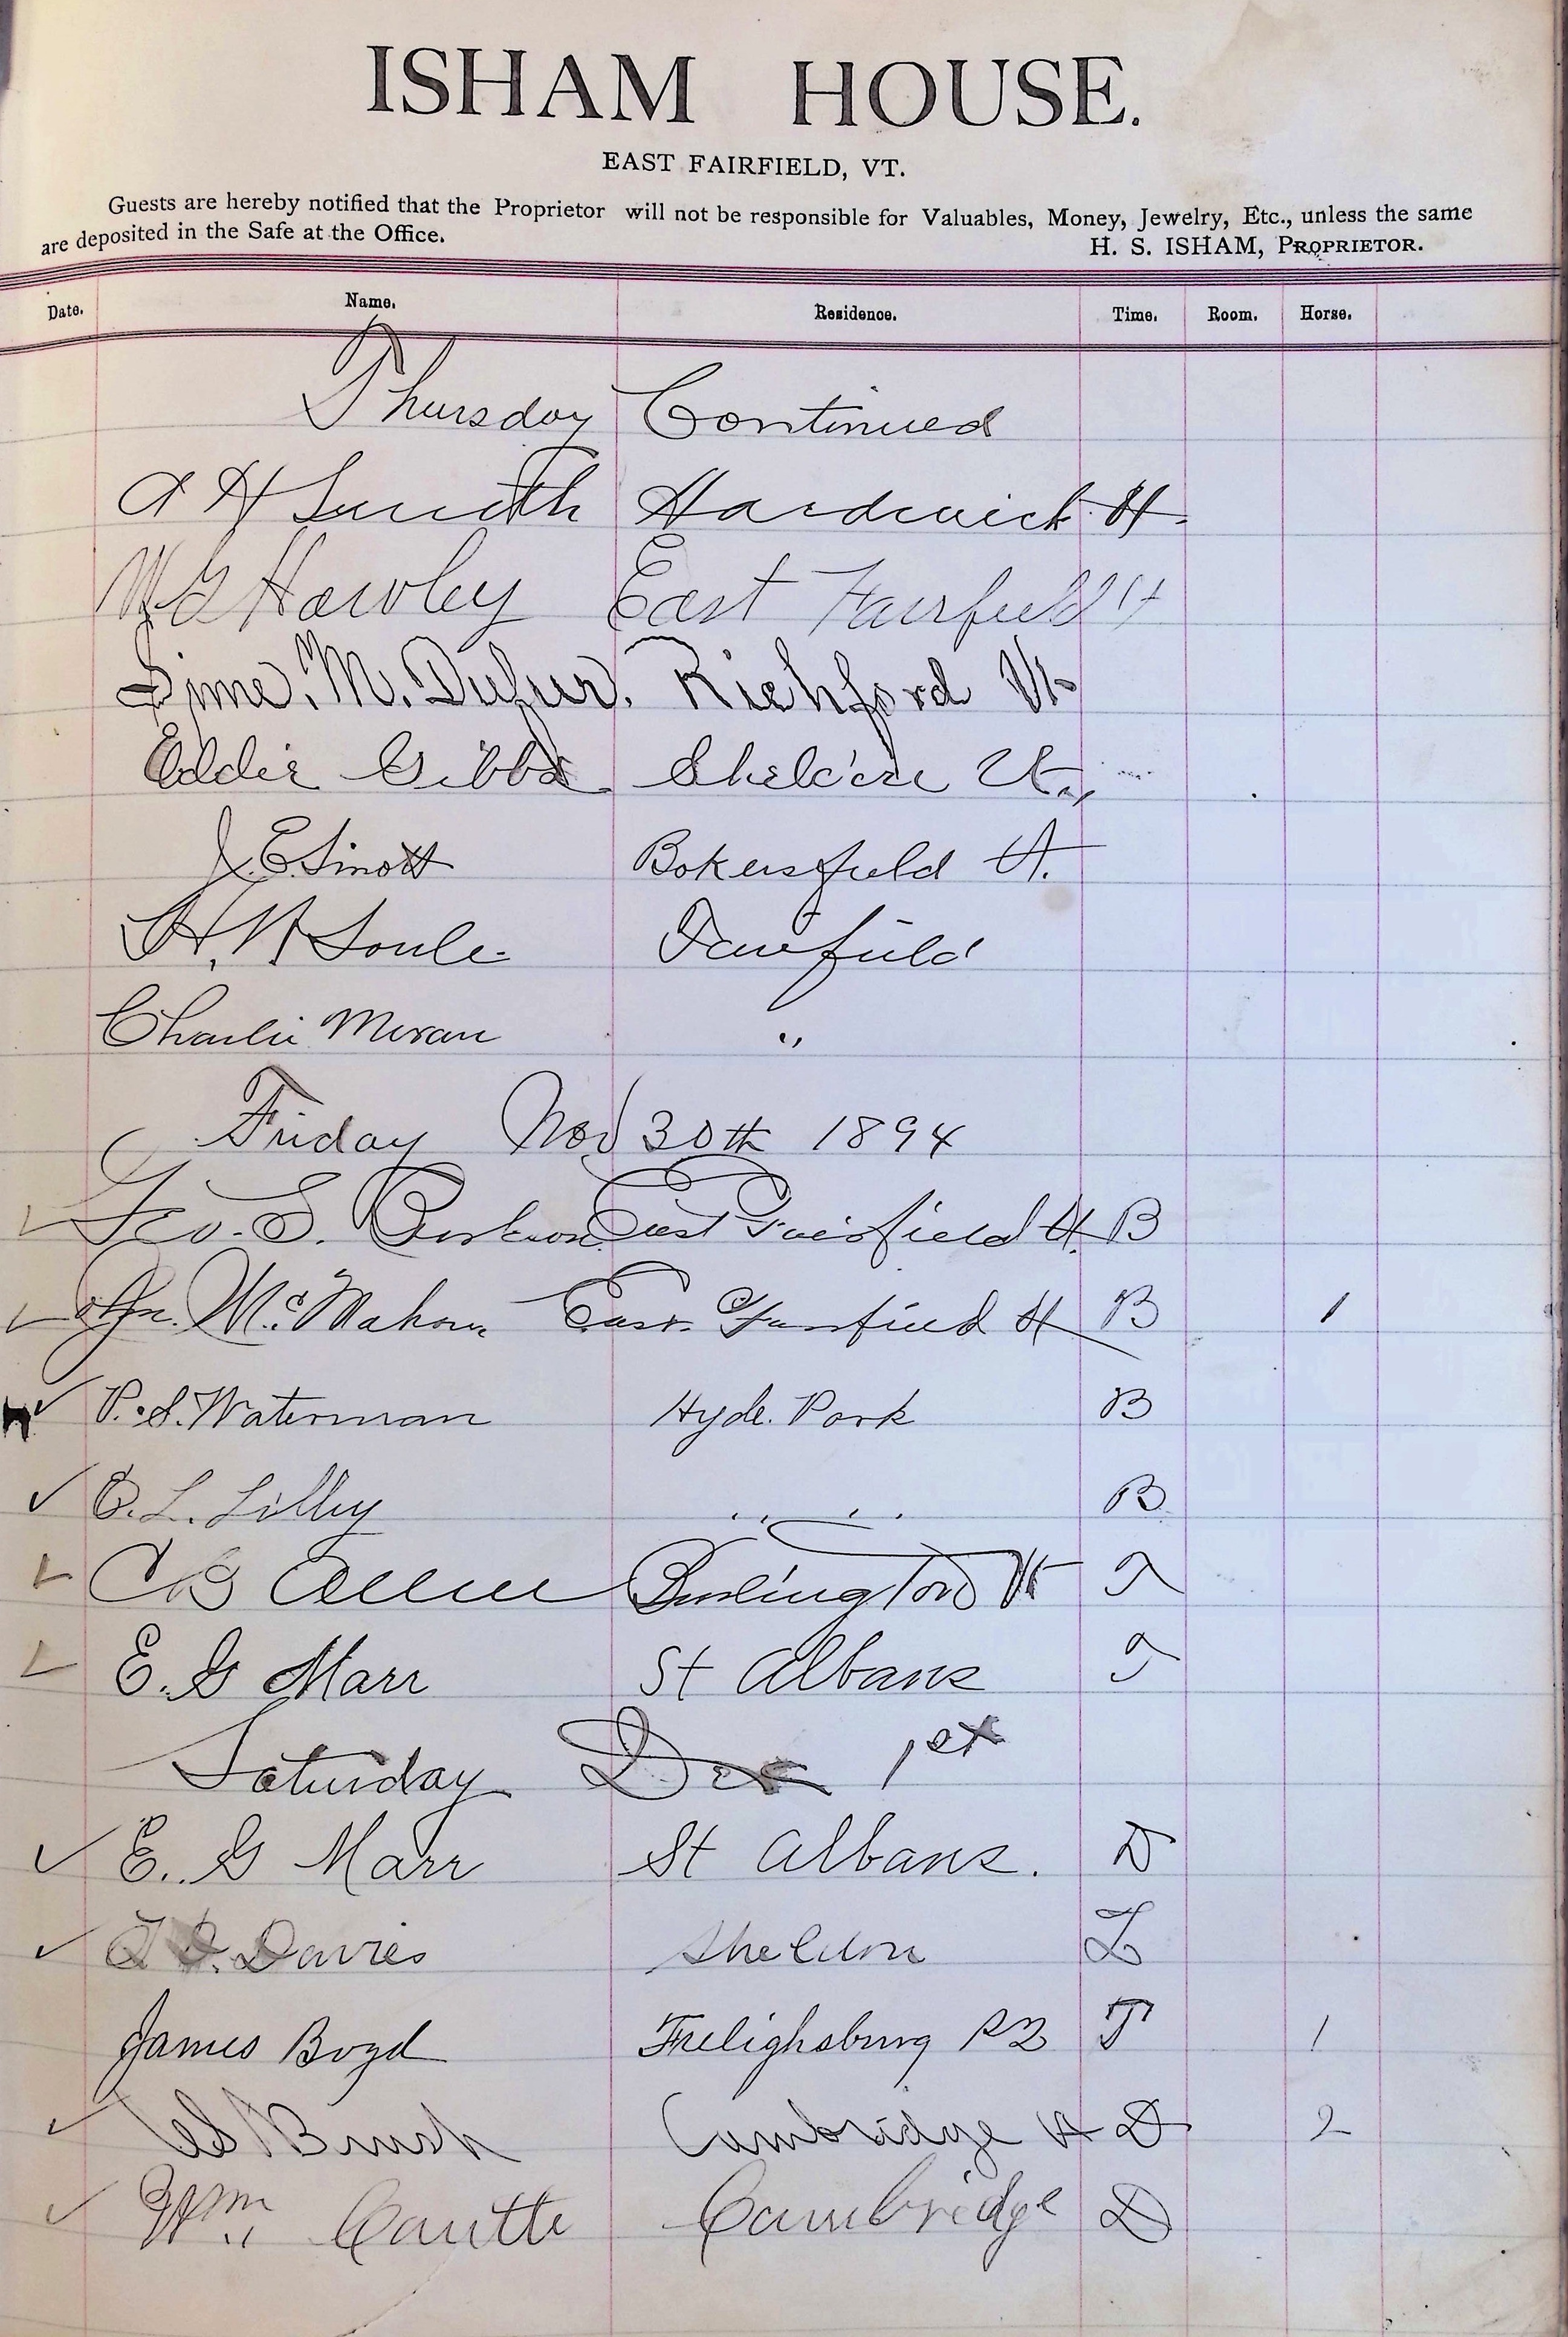 ISHAM HOUSE.
EAST FAIRFIELD, VT.
Guests are hereby notified that the Proprietor will not be responsible for Valuables, Money, Jewelry, Etc., unless the same
are deposited in the Safe at the Office. H. S. ISHAM, PROPRIETOR.
Date. Name. Residence. Time. Room. Horse.
Thursday Continued
A H Smith Hardwick Vt.
W G Hawley East Fairfield Vt
Sime. M. Dufur. Richford Vt
Eddie Gibbs Sheldon Vt.,
J. E. Sinott Bokersfield Vt.
H. N Soule Fairfield
Charlie Moran "
Friday Nov 30th 1894
✓ Geo. S. East Fairfield Vt. B
✓ Jno. McMahon East Fairfield Vt B 1
✓ P. S. Waterman Hyde. Park B
✓ O. L. Lilley " " B
✓ C B Allen Burlington Vt T
✓ E. G Marr St Albans T
Saturday Dec 1st
✓ E. G Marr St Albans. D
✓ Davies Sheldon L
James Boyd Frelighsburg P2 T 1
✓ Brush Cambridge Vt D 2
✓ Wm Cambridge D